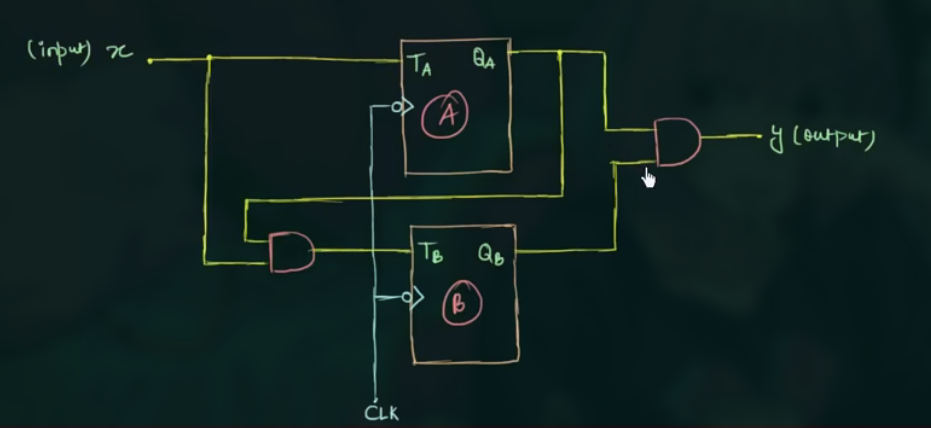 (input) x
T_A Q_A
A
y (output)
T_B Q_B
B
CLK